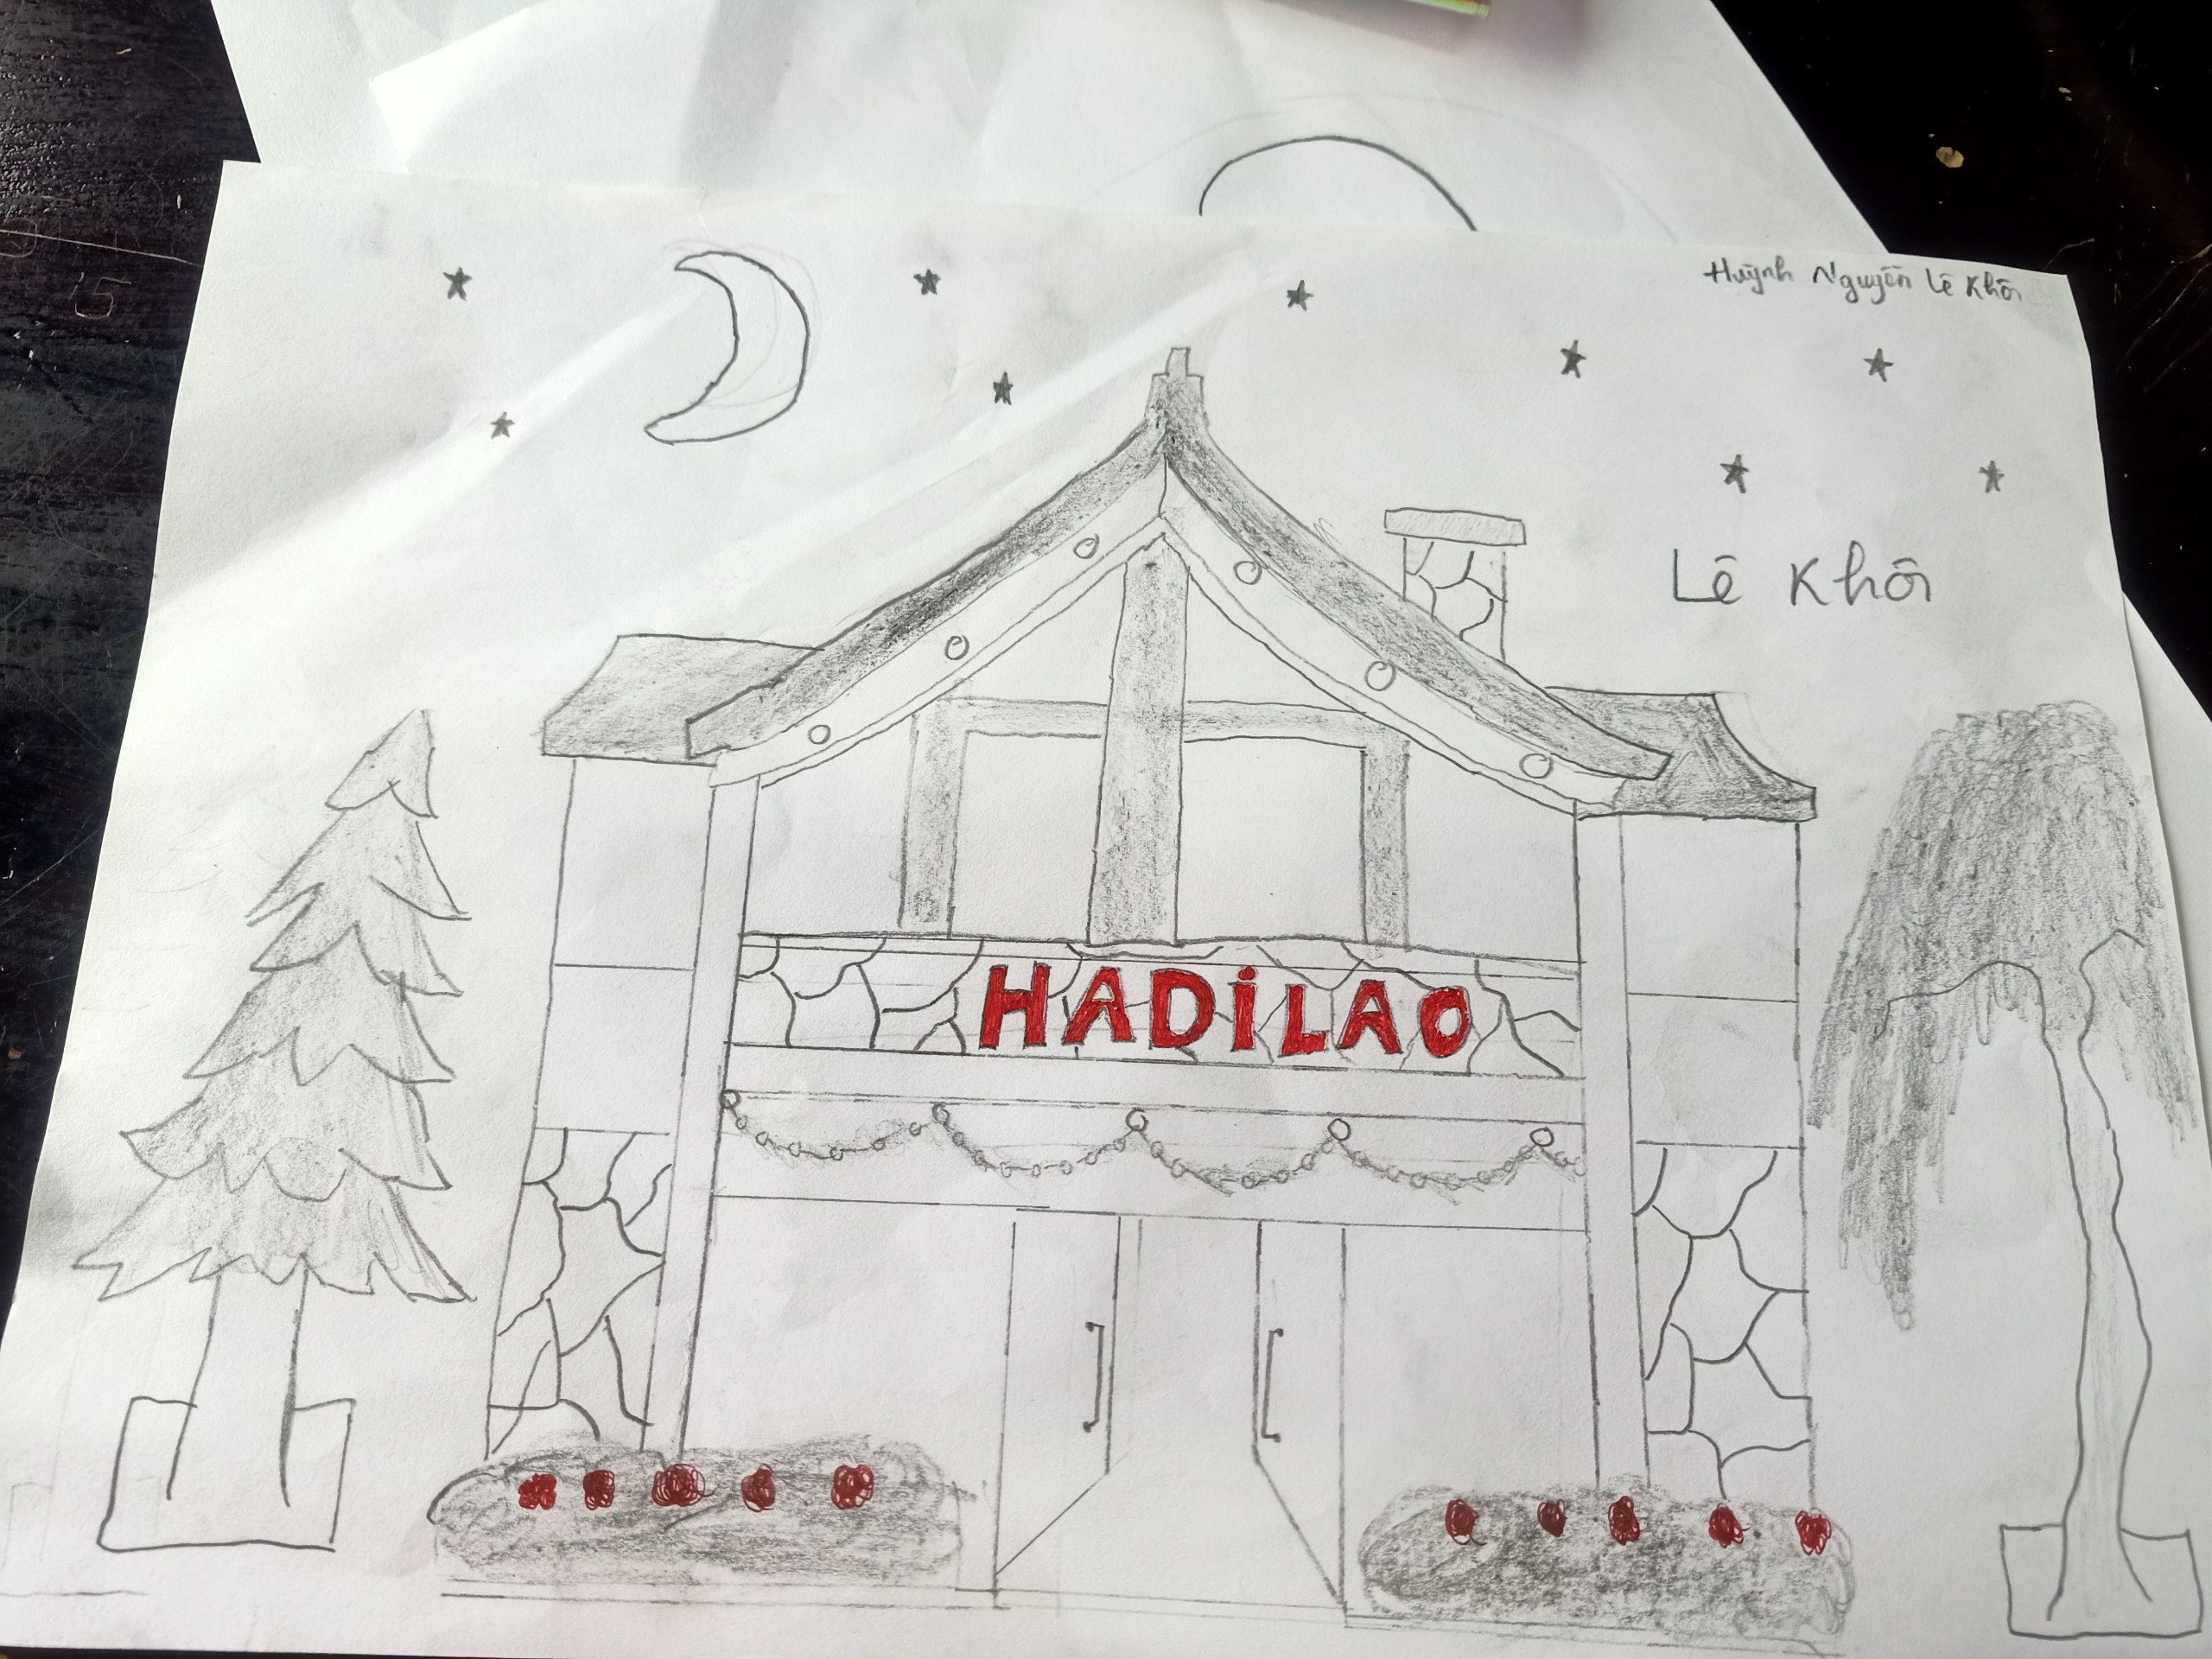 Huỳnh Nguyễn Lê Khôi
Lê Khôi
HADiLAO